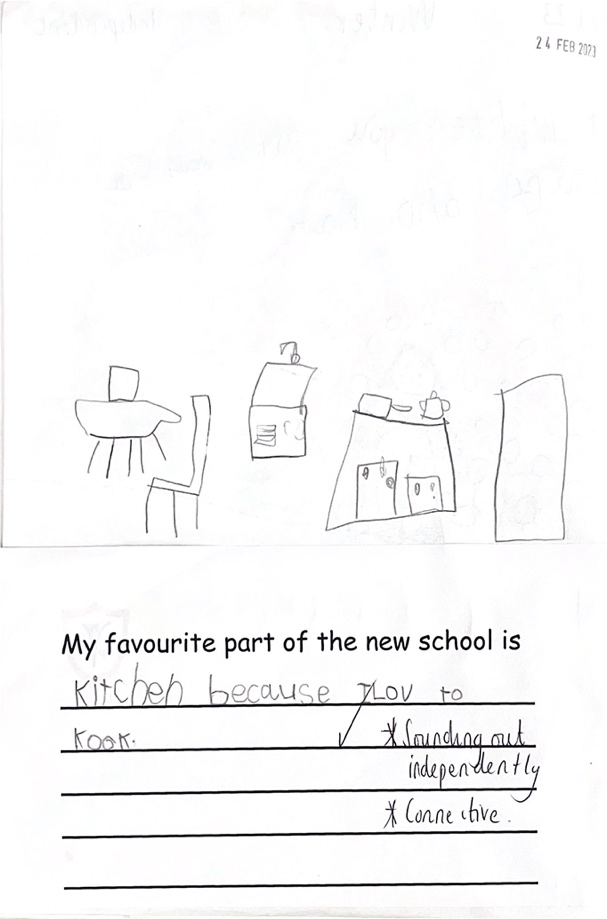 24 FEB 2023
My favourite part of the new school is
Kitchen because I Lov to
Kook.
* Sounding out
independently
* Connective.